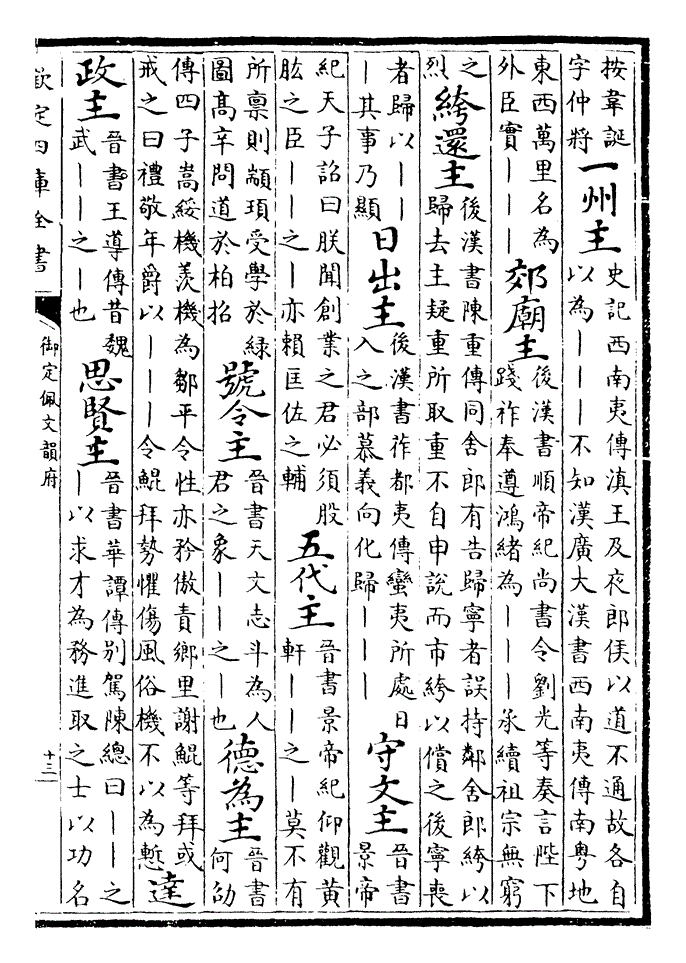 按韋誕
字仲將
一州主
史記西南夷傳滇王及夜郎侯以道不通故各自
以為｜｜｜不知漢廣大漢書西南夷傳南粤地
東西萬里名為
外臣實｜｜｜
郊廟主
後漢書順帝紀尚書令劉光等奏言陛下
踐祚奉遵鴻緒為｜｜｜承續祖宗無窮
之
烈
絝還主
後漢書陳重傳同舍郎有告歸寧者誤持鄰舍郎絝以
歸去主疑重所取重不自申說而市絝以償之後寧喪
者歸以｜｜
｜其事乃顯
日出主
後漢書莋都夷傳蠻夷所處日
入之部慕義向化歸｜｜｜
守文主
晉書
景帝
紀天子詔曰朕聞創業之君必須股
肱之臣｜｜之｜亦賴匡佐之輔
五代主
晉書景帝紀仰觀黃
軒｜｜之｜莫不有
所禀則顓頊受學於綠
圖高辛問道於柏招
號令主
晉書天文志斗為人
君之象｜｜之｜也
德為主
晉書
何劭
傳四子嵩綏機羨機為鄒平令性亦矜傲責鄉里謝鯤等拜或
戒之曰禮敬年爵以｜｜｜令鯤拜勢懼傷風俗機不以為慙
達
政主
晉書王導傳昔魏
武｜｜之｜也
思賢主
晉書華譚傳別駕陳總曰｜｜之
｜以求才為務進取之士以功名
欽定四庫全書
御定佩文韻府
十三